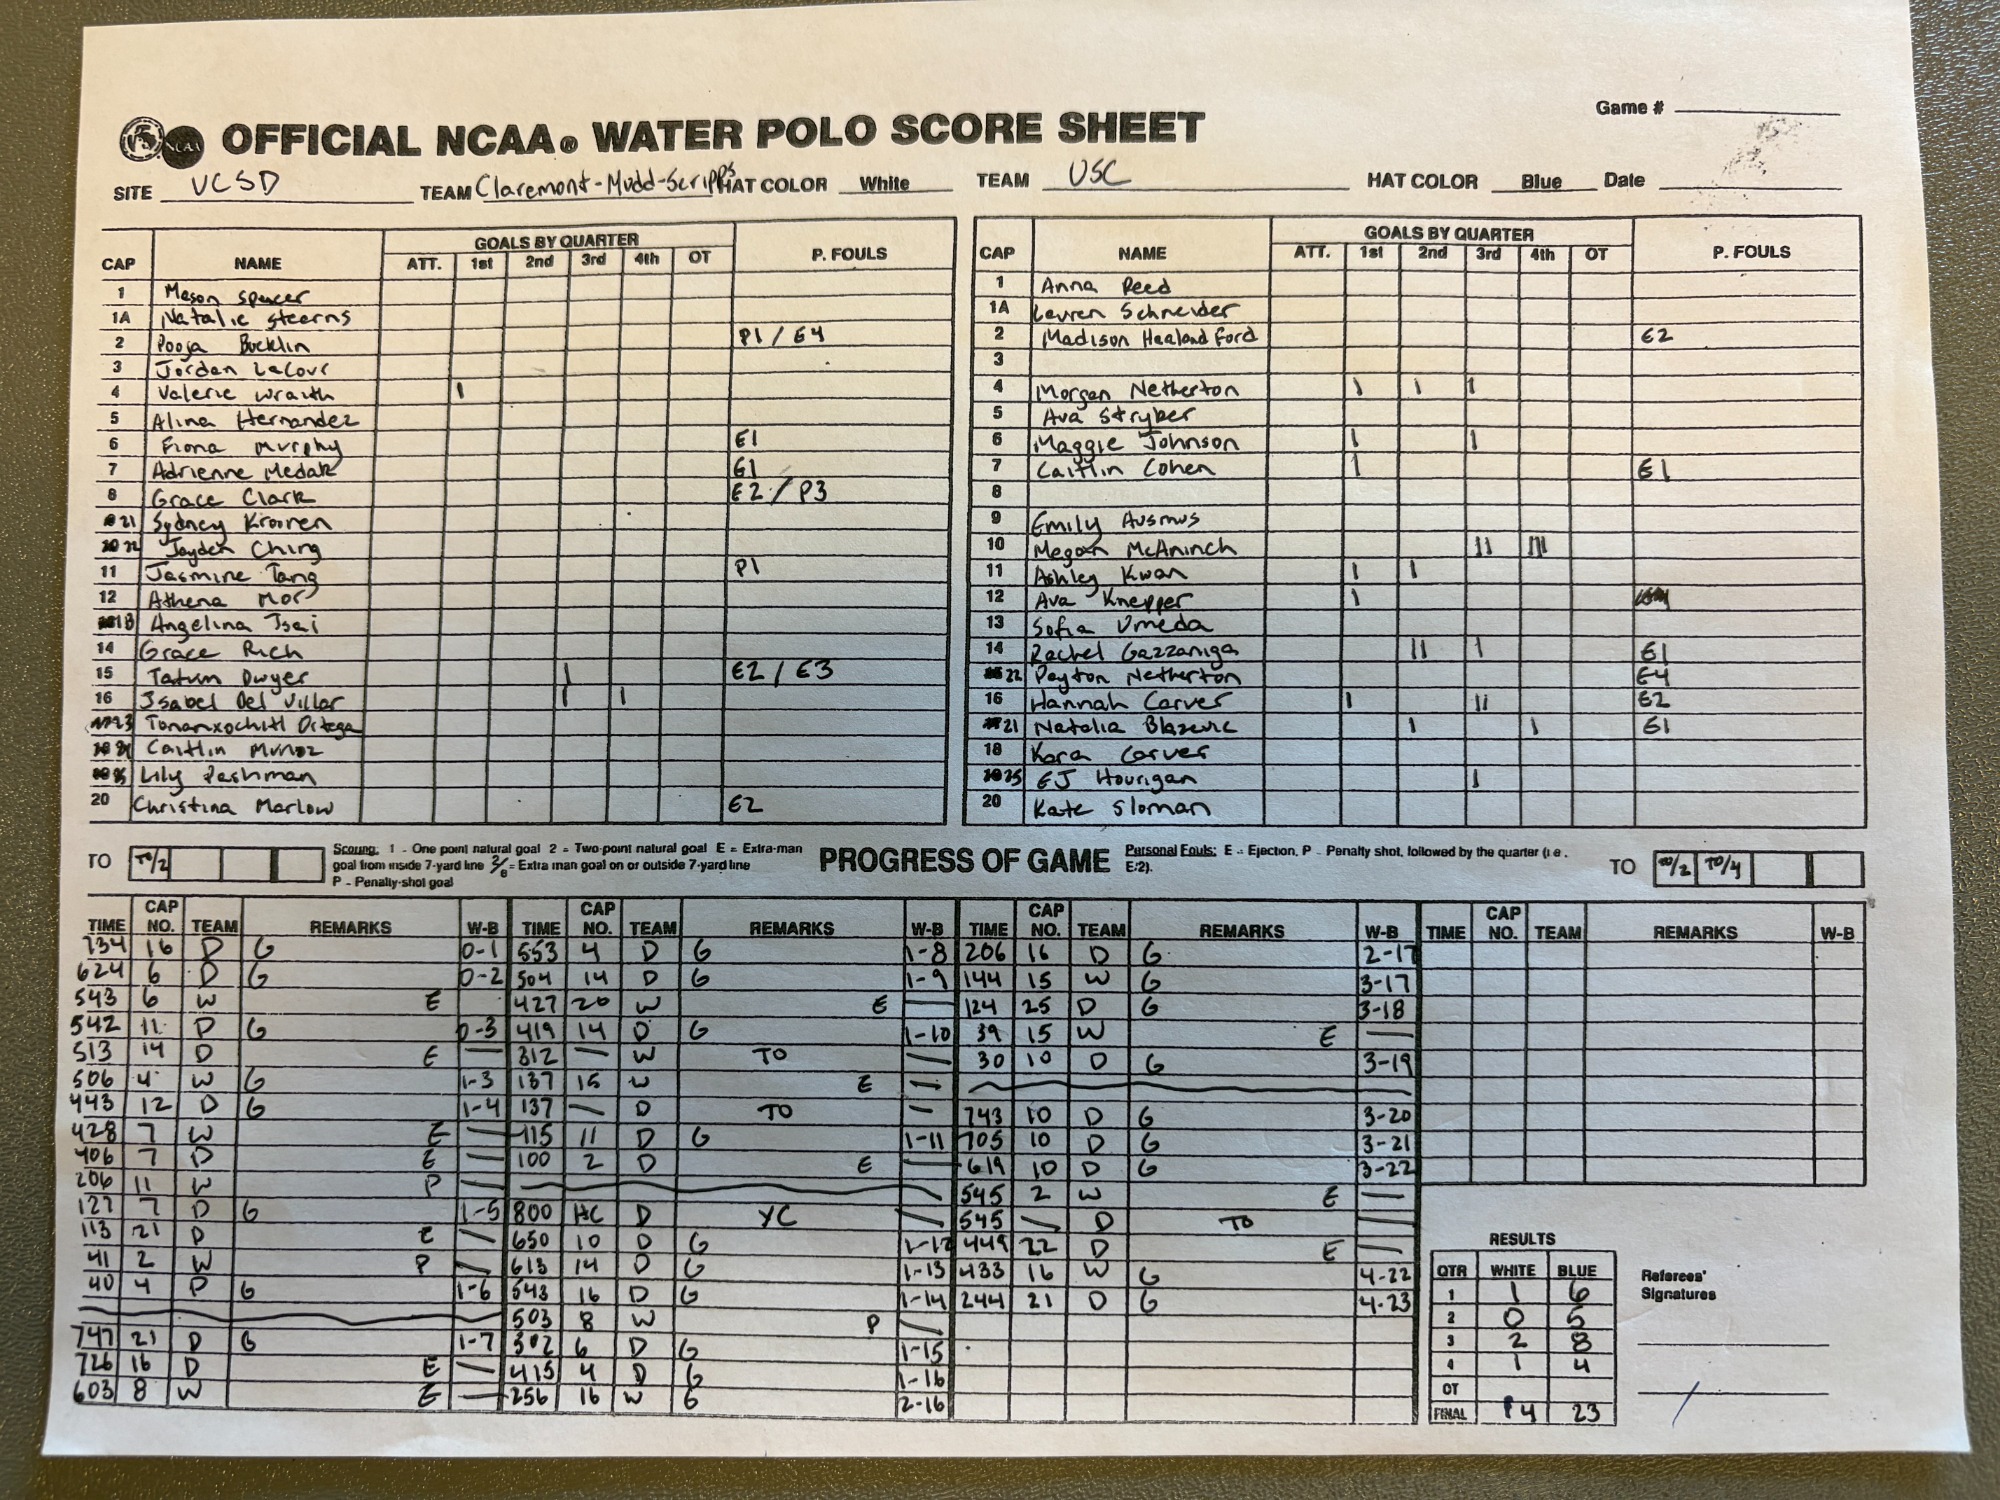 Game #
OFFICIAL NCAA® WATER POLO SCORE SHEET
SITE UCSD TEAM Claremont-Mudd-Scripps HAT COLOR White TEAM USC HAT COLOR Blue Date
GOALS BY QUARTER
CAP NAME ATT. 1st 2nd 3rd 4th OT P. FOULS
1 Mason Spencer
1A Natalie Steerns
2 Pooja Bucklin P1 / E4
3 Jordan LaCour
4 Valerie Wraith |
5 Alina Hernandez
6 Fiona Murphy E1
7 Adrienne Medak E1
8 Grace Clark E2 / P3
21 Sydney Kroonen
22 Jayden Ching
11 Jasmine Tang P1
12 Athena Mor
18 Angelina Tsai
14 Grace Rich
15 Tatum Dwyer | E2 / E3
16 Isabel Del Villar | |
23 Tonanxochitl Ortega
Caitlin Munoz
Lily Pashman
20 Christina Marlow E2
GOALS BY QUARTER
CAP NAME ATT. 1st 2nd 3rd 4th OT P. FOULS
1 Anna Reed
1A Lauren Schneider
2 Madison Healand Ford E2
3
4 Morgan Netherton | | |
5 Ava Stryker
6 Maggie Johnson | |
7 Caitlin Cohen | E1
8
9 Emily Ausmus
10 Megan McAninch || |||
11 Ashley Kwan | |
12 Ava Knepper |
13 Sofia Umeda
14 Rachel Gazzaniga || | E1
22 Peyton Netherton E4
16 Hannah Carver | || E2
21 Natalia Blazevic | | E1
18 Kara Carver
25 EJ Hourigan |
20 Kate Sloman
TO TO/2
Scoring: 1 - One point natural goal 2 = Two-point natural goal E = Extra-man
goal from inside 7-yard line 2/e = Extra man goal on or outside 7-yard line
P - Penalty-shot goal
PROGRESS OF GAME
Personal Fouls: E - Ejection, P - Penalty shot, followed by the quarter (i.e.
E:2).
TO TO/2 TO/4
TIME CAP NO. TEAM REMARKS W-B
734 16 D G 0-1
624 6 D G 0-2
543 6 W E
542 11 D G 0-3
513 14 D E —
506 4 W G 1-3
443 12 D G 1-4
428 7 W E —
406 7 D E —
206 11 W P —
127 7 D G 1-5
113 21 D E —
41 2 W P —
40 4 D G 1-6
747 21 D G 1-7
726 16 D E —
603 8 W E —
TIME CAP NO. TEAM REMARKS W-B
553 4 D G 1-8
504 14 D G 1-9
427 20 W E —
419 14 D G 1-10
312 — W TO —
137 15 W E —
137 — D TO —
115 11 D G 1-11
100 2 D E —
800 HC D YC —
650 10 D G 1-12
613 14 D G 1-13
543 16 D G 1-14
503 8 W P —
502 6 D G 1-15
415 4 D G 1-16
256 16 W G 2-16
TIME CAP NO. TEAM REMARKS W-B
206 16 D G 2-17
144 15 W G 3-17
124 25 D G 3-18
39 15 W E —
30 10 D G 3-19
743 10 D G 3-20
705 10 D G 3-21
619 10 D G 3-22
545 2 W E —
545 — D TO —
449 22 D E —
433 16 W G 4-22
244 21 D G 4-23
TIME CAP NO. TEAM REMARKS W-B
RESULTS
QTR WHITE BLUE
1 1 6
2 0 5
3 2 8
4 1 4
OT
FINAL 4 23
Referees'
Signatures